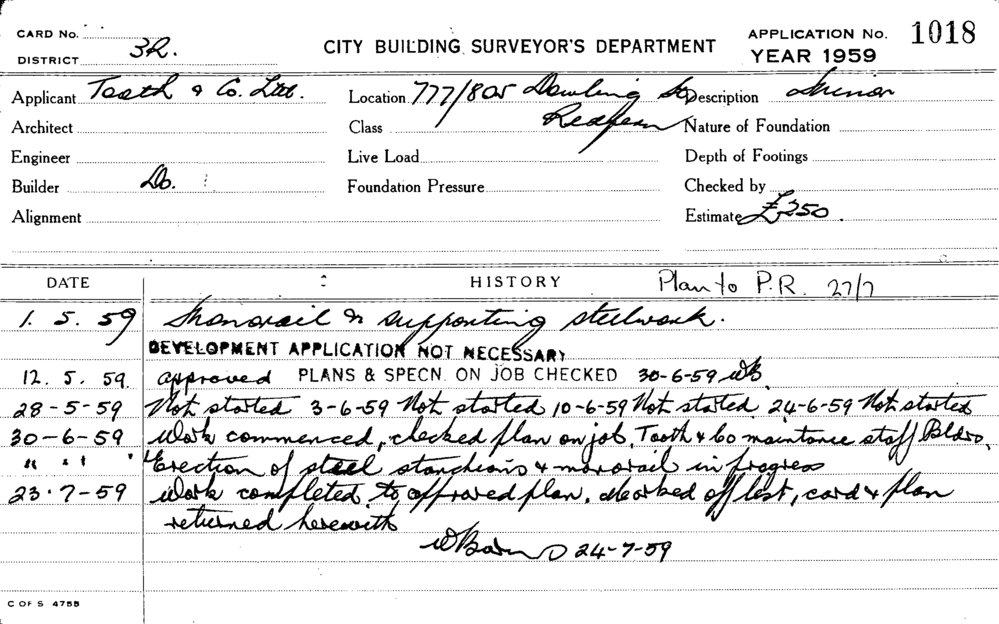 CARD No.
DISTRICT 3R.
CITY BUILDING SURVEYOR'S DEPARTMENT
APPLICATION No. 1018
YEAR 1959
Applicant Tooth & Co. Ltd. Location 777/805 Dowling St Description Minor
Architect Class Redfern Nature of Foundation
Engineer Live Load Depth of Footings
Builder Do. Foundation Pressure Checked by
Alignment Estimate £350.
DATE HISTORY Plan to P.R. 27/7
1. 5. 59 Monorail & supporting steelwork.
DEVELOPMENT APPLICATION NOT NECESSARY
12. 5. 59. approved PLANS & SPECN. ON JOB CHECKED 30-6-59 WB.
28-5-59 Not started 3-6-59 Not started 10-6-59 Not started 24-6-59 Not started
30-6-59 Work commenced, checked plan on job, Tooth & Co maintance staff Bldrs.
" " " Erection of steel stanchions & monorail in progress
23.7-59 Work completed to approved plan. Marked off list, card & plan
returned herewith
24-7-59
C OF S 4755